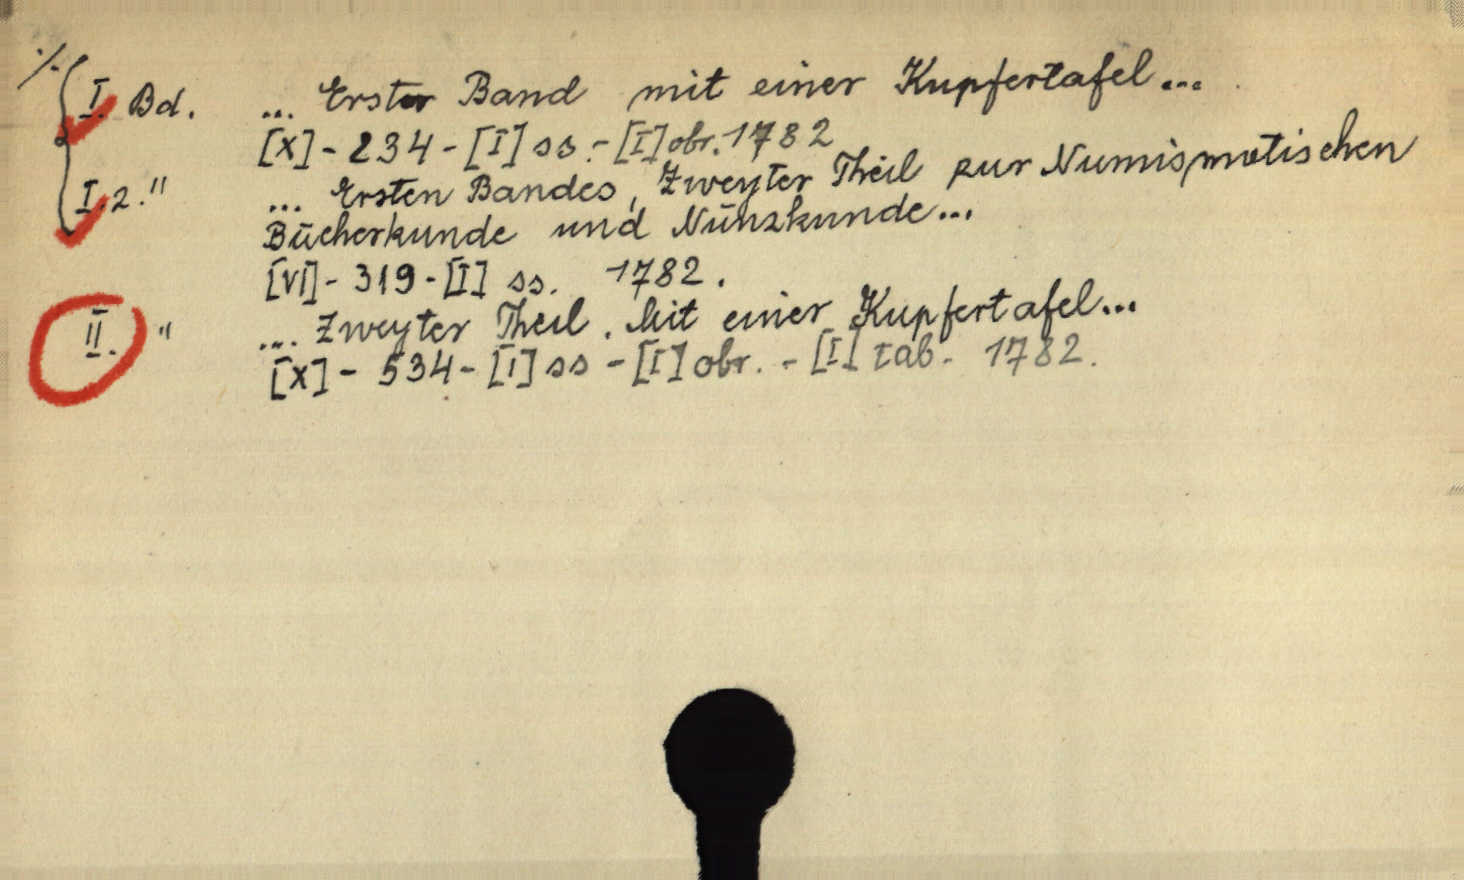 ·/· I. Bd. ... Erster Band mit einer Kupfertafel...
[X] - 234 - [I] ss. - [I] obr. 1782
I. 2. " ... Ersten Bandes, Zweyter Theil zur Numismatischen
Bücherkunde und Münzkunde...
[VI] - 319 - [I] ss. 1782.
II. " ... Zweyter Theil. Mit einer Kupfertafel...
[X] - 534 - [I] ss - [I] obr. - [I] tab. 1782.